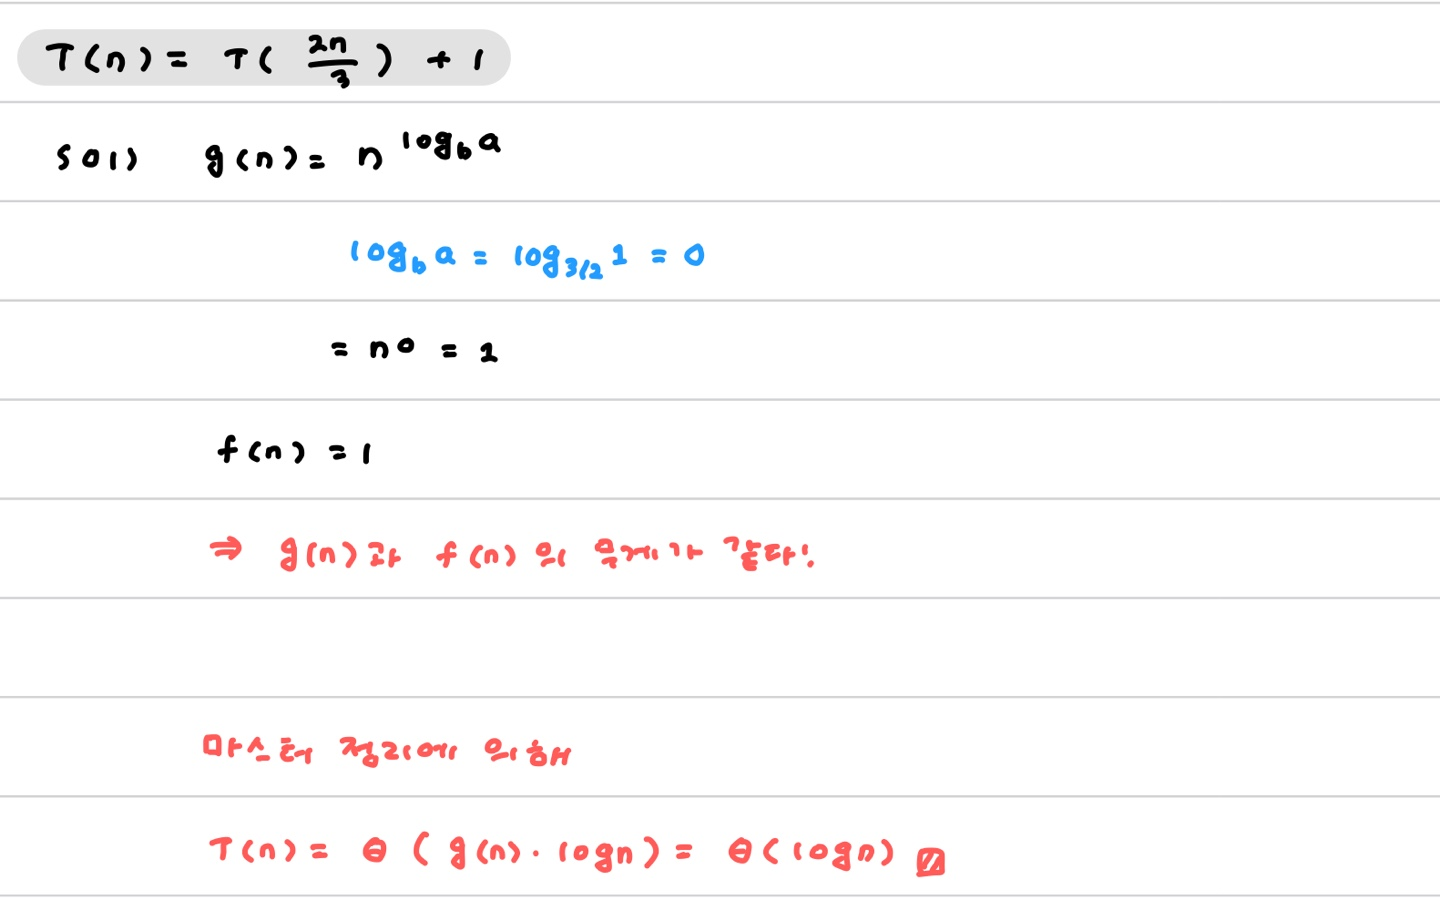 T(n) = T( 2n/3 ) + 1
sol) g(n) = n^log_b a
log_b a = log_3/2 1 = 0
= n^0 = 1
f(n) = 1
⇒ g(n)과 f(n)의 무게가 같다!
마스터 정리에 의해
T(n) = Θ ( g(n) · logn ) = Θ(logn)